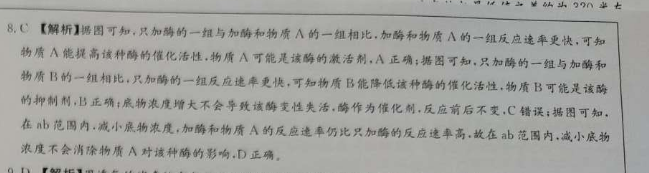 8. C 【解析】据图可知,只加酶的一组与加酶和物质 A 的一组相比,加酶和物质 A 的一组反应速率更快,可知
物质 A 能提高该种酶的催化活性,物质 A 可能是该酶的激活剂,A 正确;据图可知,只加酶的一组与加酶和
物质 B 的一组相比,只加酶的一组反应速率更快,可知物质 B 能降低该种酶的催化活性,物质 B 可能是该酶
的抑制剂,B 正确;底物浓度增大不会导致该酶变性失活,酶作为催化剂,反应前后不变,C 错误;据图可知,
在 ab 范围内,减小底物浓度,加酶和物质 A 的反应速率仍比只加酶的反应速率高,故在 ab 范围内,减小底物
浓度不会消除物质 A 对该种酶的影响,D 正确。